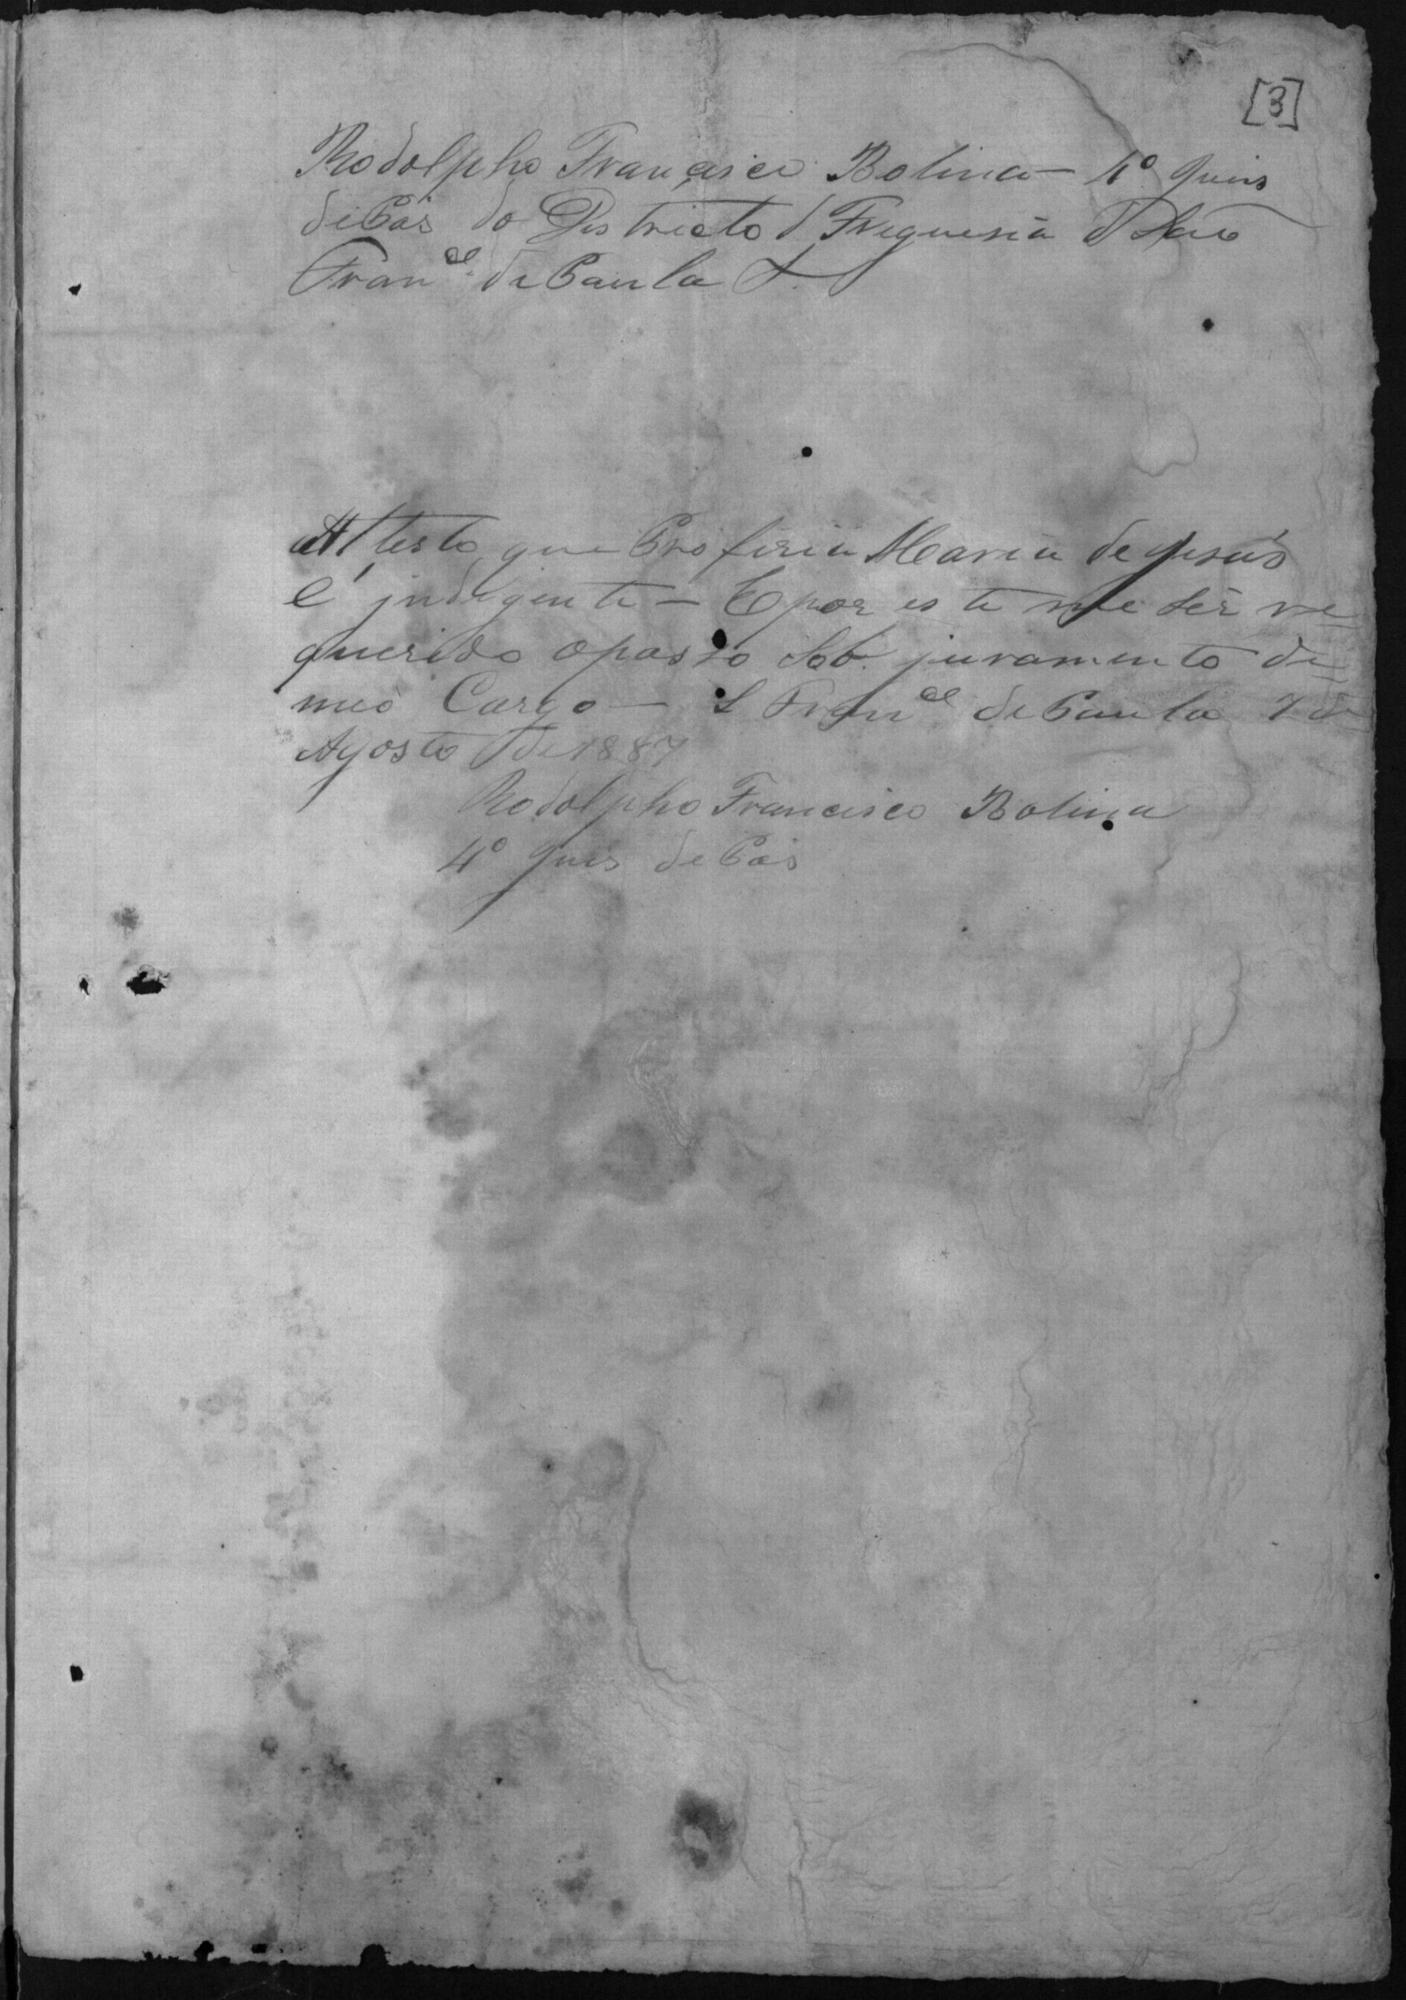 [3]
Rodolpho Francisco Bolina – 4º Juis
de Pás do Districto d Freguesia d São
Franco. de Paula &.
Attesto que Profiria Maria de Jesus
é indigente – E por este me ser re
querido o passo Sob. juramento de
meo Cargo – S Franco de Paula 7 de
Agosto de 1887
Rodolpho Francisco Bolina
4º Juis de Pás